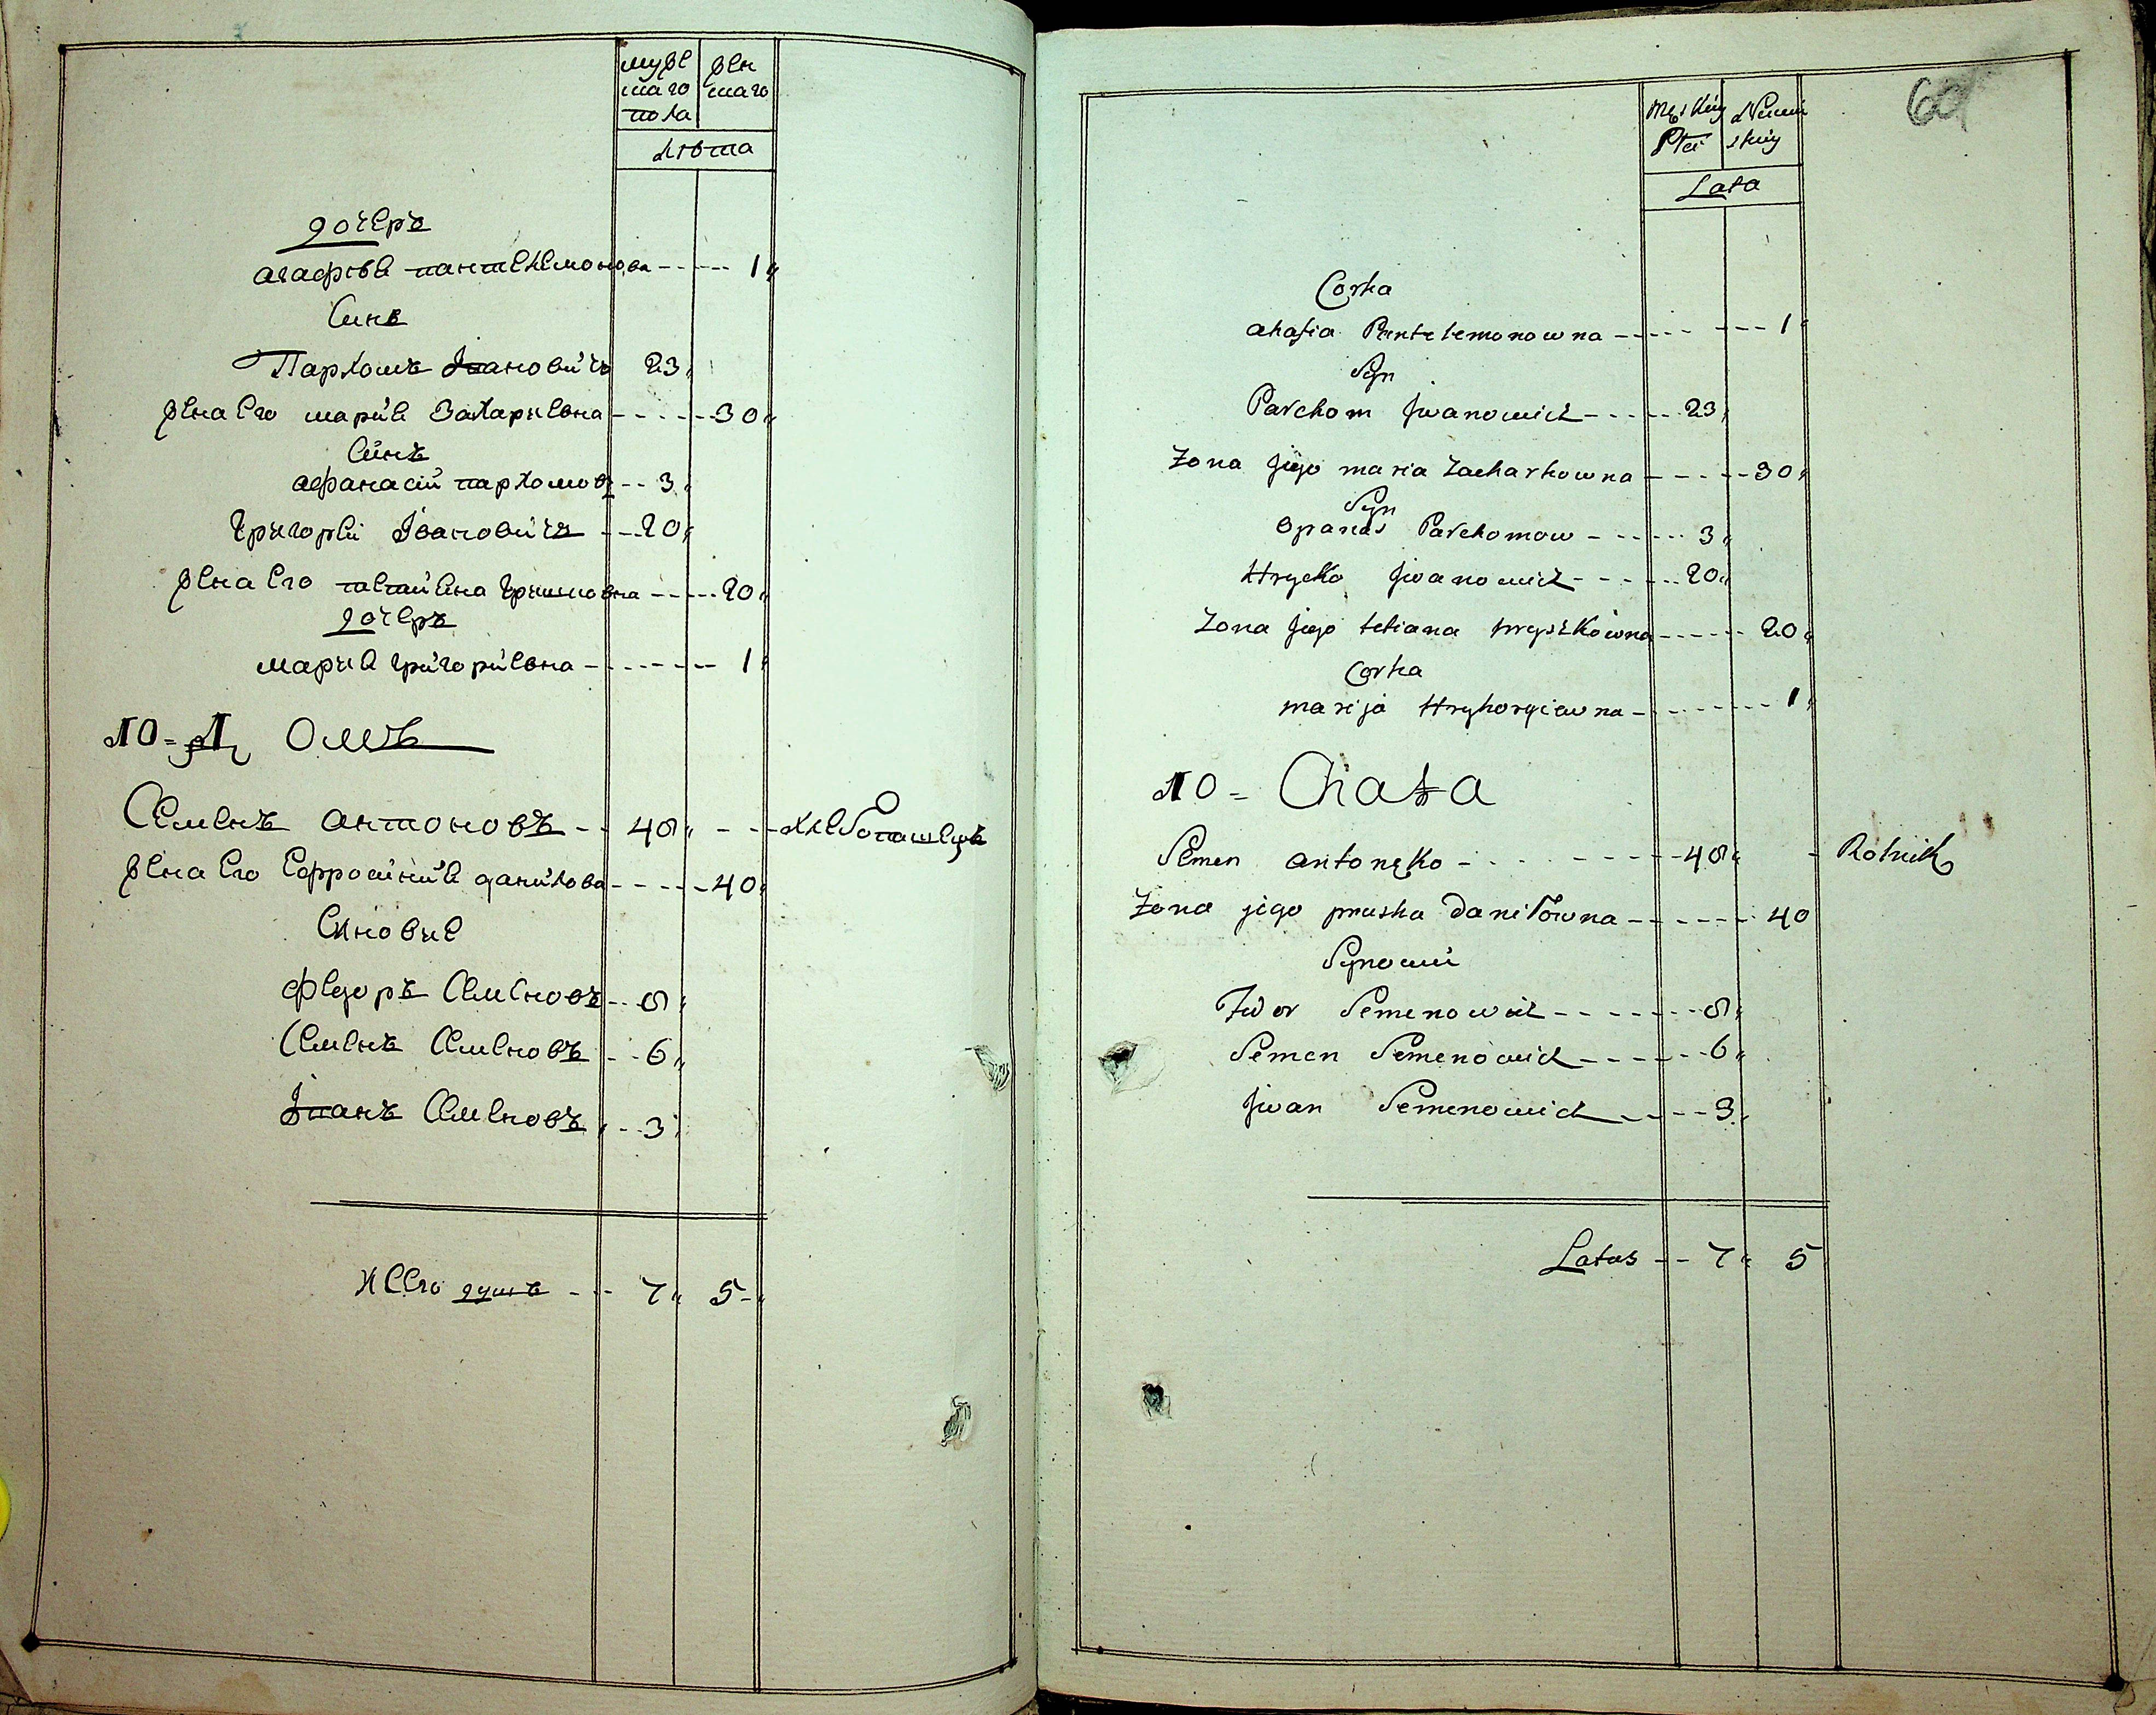 муже жен
скаго скаго
пола
лѣта
дочерь
агафіа пантелемонова 1
Синъ
Пархомъ Івановичъ 23
жена Его маріа Захаріевна 30
Синъ
афанасій пархомовъ 3
Григорей Івановичъ 20
жена Его татиіана Гришковна 20
дочерь
мариа григоріевна 1
10 = Домъ
Семенъ антоновъ 48 хлебопашецъ
жена Его Ефросиніа данилова 40
Синовие
Федоръ Семеновъ 8
Семенъ Семеновъ 6
Іванъ Семеновъ 3
Всего душъ 7 5
60
Męskiey Żeń
Płci skiey
Lata
Corka
ahafia Pentelemonowna 1
Syn
Parchom Jwanowicz 23
Zona jego maria Zacharkowna 30
Syn
Opanas Parchomow 3
Hrycko Jwanowicz 20
Zona jego tetiana hryszkowna 20
Corka
marija Hryhoryiewna 1
10 = Chata
Semen antonęko 48 Rolnik
Zona jego pruska Daniłowna 40
Synowie
Fwdor Semenowicz 8
Semen Semenowicz 6
Jwan Semenowicz 3
Latus 7 5